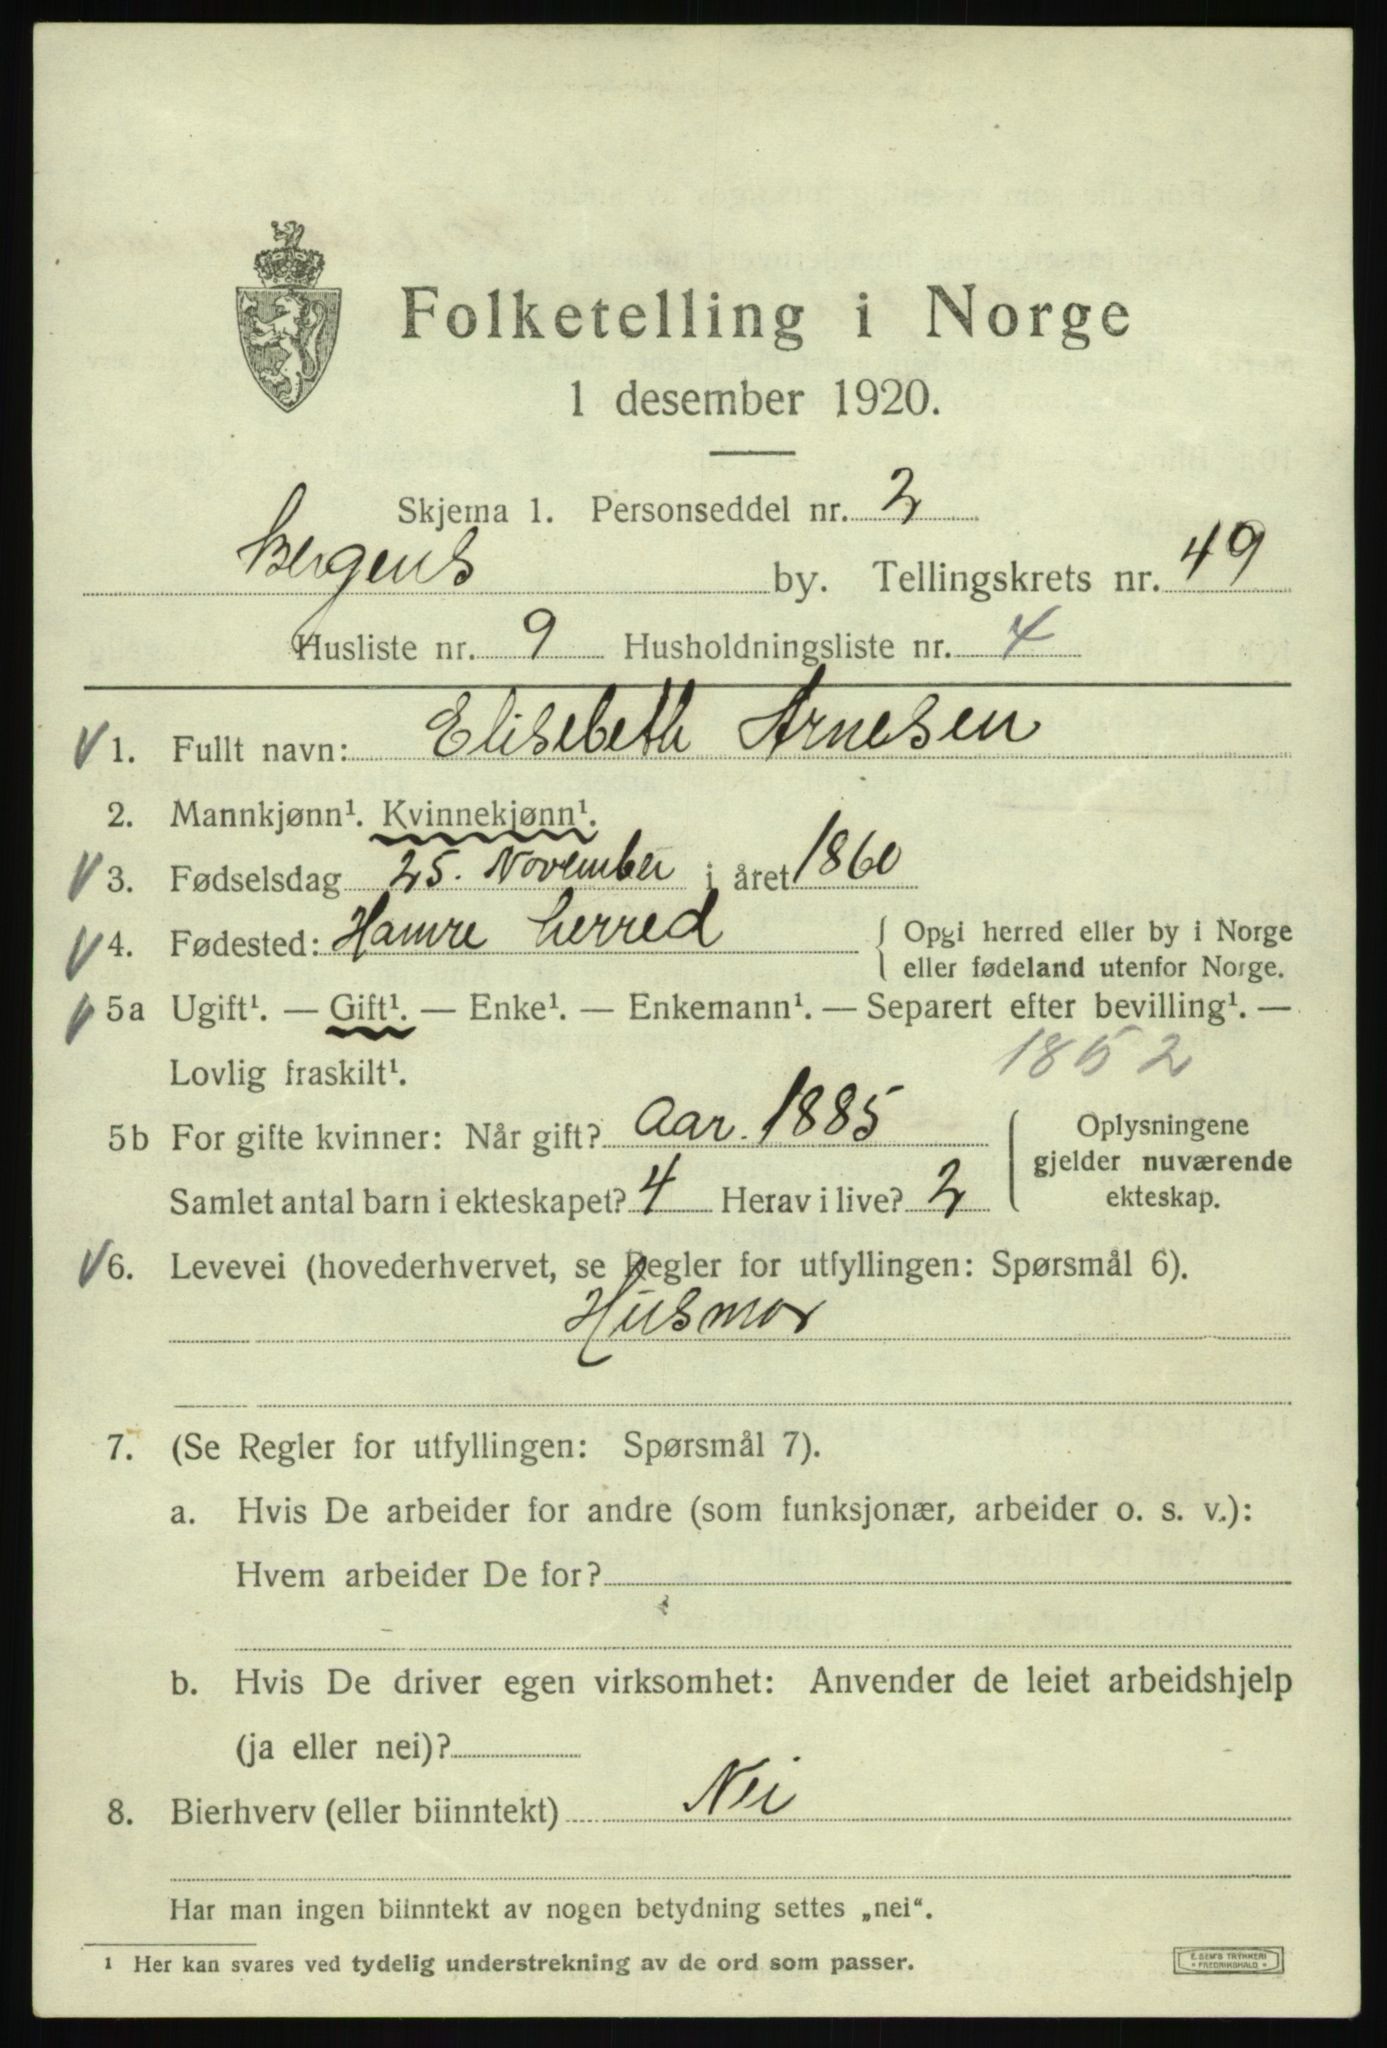 Folketelling i Norge
1 desember 1920.
Skjema 1. Personseddel nr. 2
Bergens by. Tellingskrets nr. 49
Husliste nr. 9 Husholdningsliste nr. 4
1. Fullt navn: Elisebeth Arnesen
2. Mannkjønn¹. Kvinnekjønn¹.
3. Fødselsdag 25. November i året 1860
4. Fødested: Hamre herred { Opgi herred eller by i Norge
eller fødeland utenfor Norge.
5a Ugift¹. — Gift¹. — Enke¹. — Enkemann¹. — Separert efter bevilling¹. —
Lovlig fraskilt¹. 1852
5b For gifte kvinner: Når gift? Aar. 1885 ( Oplysningene
gjelder nuværende
Samlet antal barn i ekteskapet? 4 Herav i live? 2 ekteskap.
6. Levevei (hovederhvervet, se Regler for utfyllingen: Spørsmål 6).
Husmor
7. (Se Regler for utfyllingen: Spørsmål 7).
a. Hvis De arbeider for andre (som funksjonær, arbeider o. s. v.):
Hvem arbeider De for?
b. Hvis De driver egen virksomhet: Anvender de leiet arbeidshjelp
(ja eller nei)?
8. Bierhverv (eller biinntekt) Nei
Har man ingen biinntekt av nogen betydning settes „nei“.
¹ Her kan svares ved tydelig understrekning av de ord som passer.
E. SEM'S TRYKKERI
FREDRIKSHALD